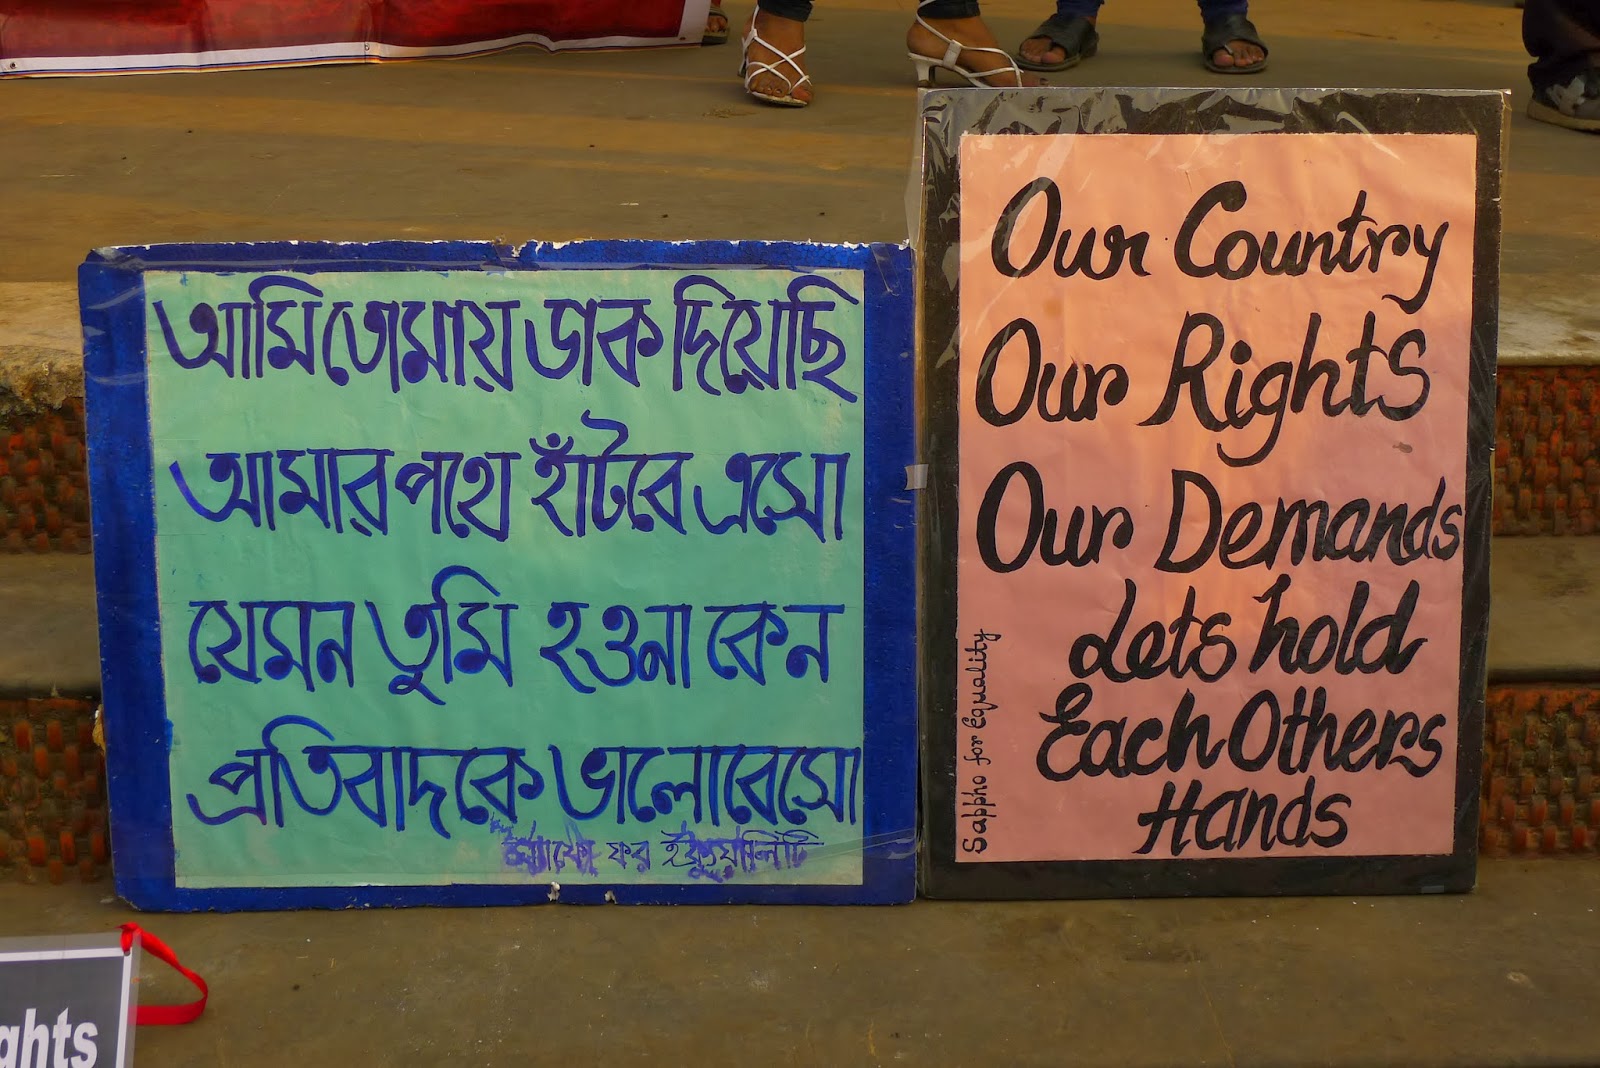 আমি তোমায় ডাক দিয়েছি
আমার পথে হাঁটবে এসো
যেমন তুমি হওনা কেন
প্রতিবাদকে ভালোবেসো
স্যাফো ফর ইকুয়ালিটি
Our Country
Our Rights
Our Demands
Lets hold
Each Others
Hands
Sappho for Equality
ghts